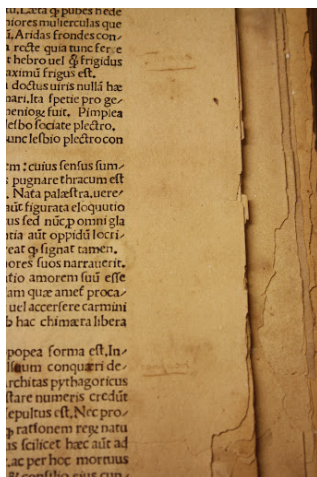 tu. Læta ꝙ pubes hede
niores muliercula que
ū. Aridas frondes con-
a recte quia tunc fer e
t hebro uel ꝙ frigidus
aximū frigus est.
doctus uiris nullā hæ
nari. Ita spetie pro ge-
fuit. Pimplea
lesbo sociate plectro.
unc lesbio plectro con
m: cuius sensus sum-
s pugnare thracum est
. Nata palæstra. uere-
aūt figurata eloquutio
us sed nūc ꝓ omni gla
tia aūt oppidū locri-
reat ꝙ signat tamen.
ores suos narrauerit.
tio amorem suū esse
am quæ amet proca-
uel accersere carmini
b hac chimæra libera
popea forma est. In-
conquæri de-
rchitas pythagoricus
stare numeris credūt
sepultus est. Nec pro-
ꝙ rationem rege natu
as scilicet hæc aūt ad
. ac per hoc mortuus
consilio eius cun-